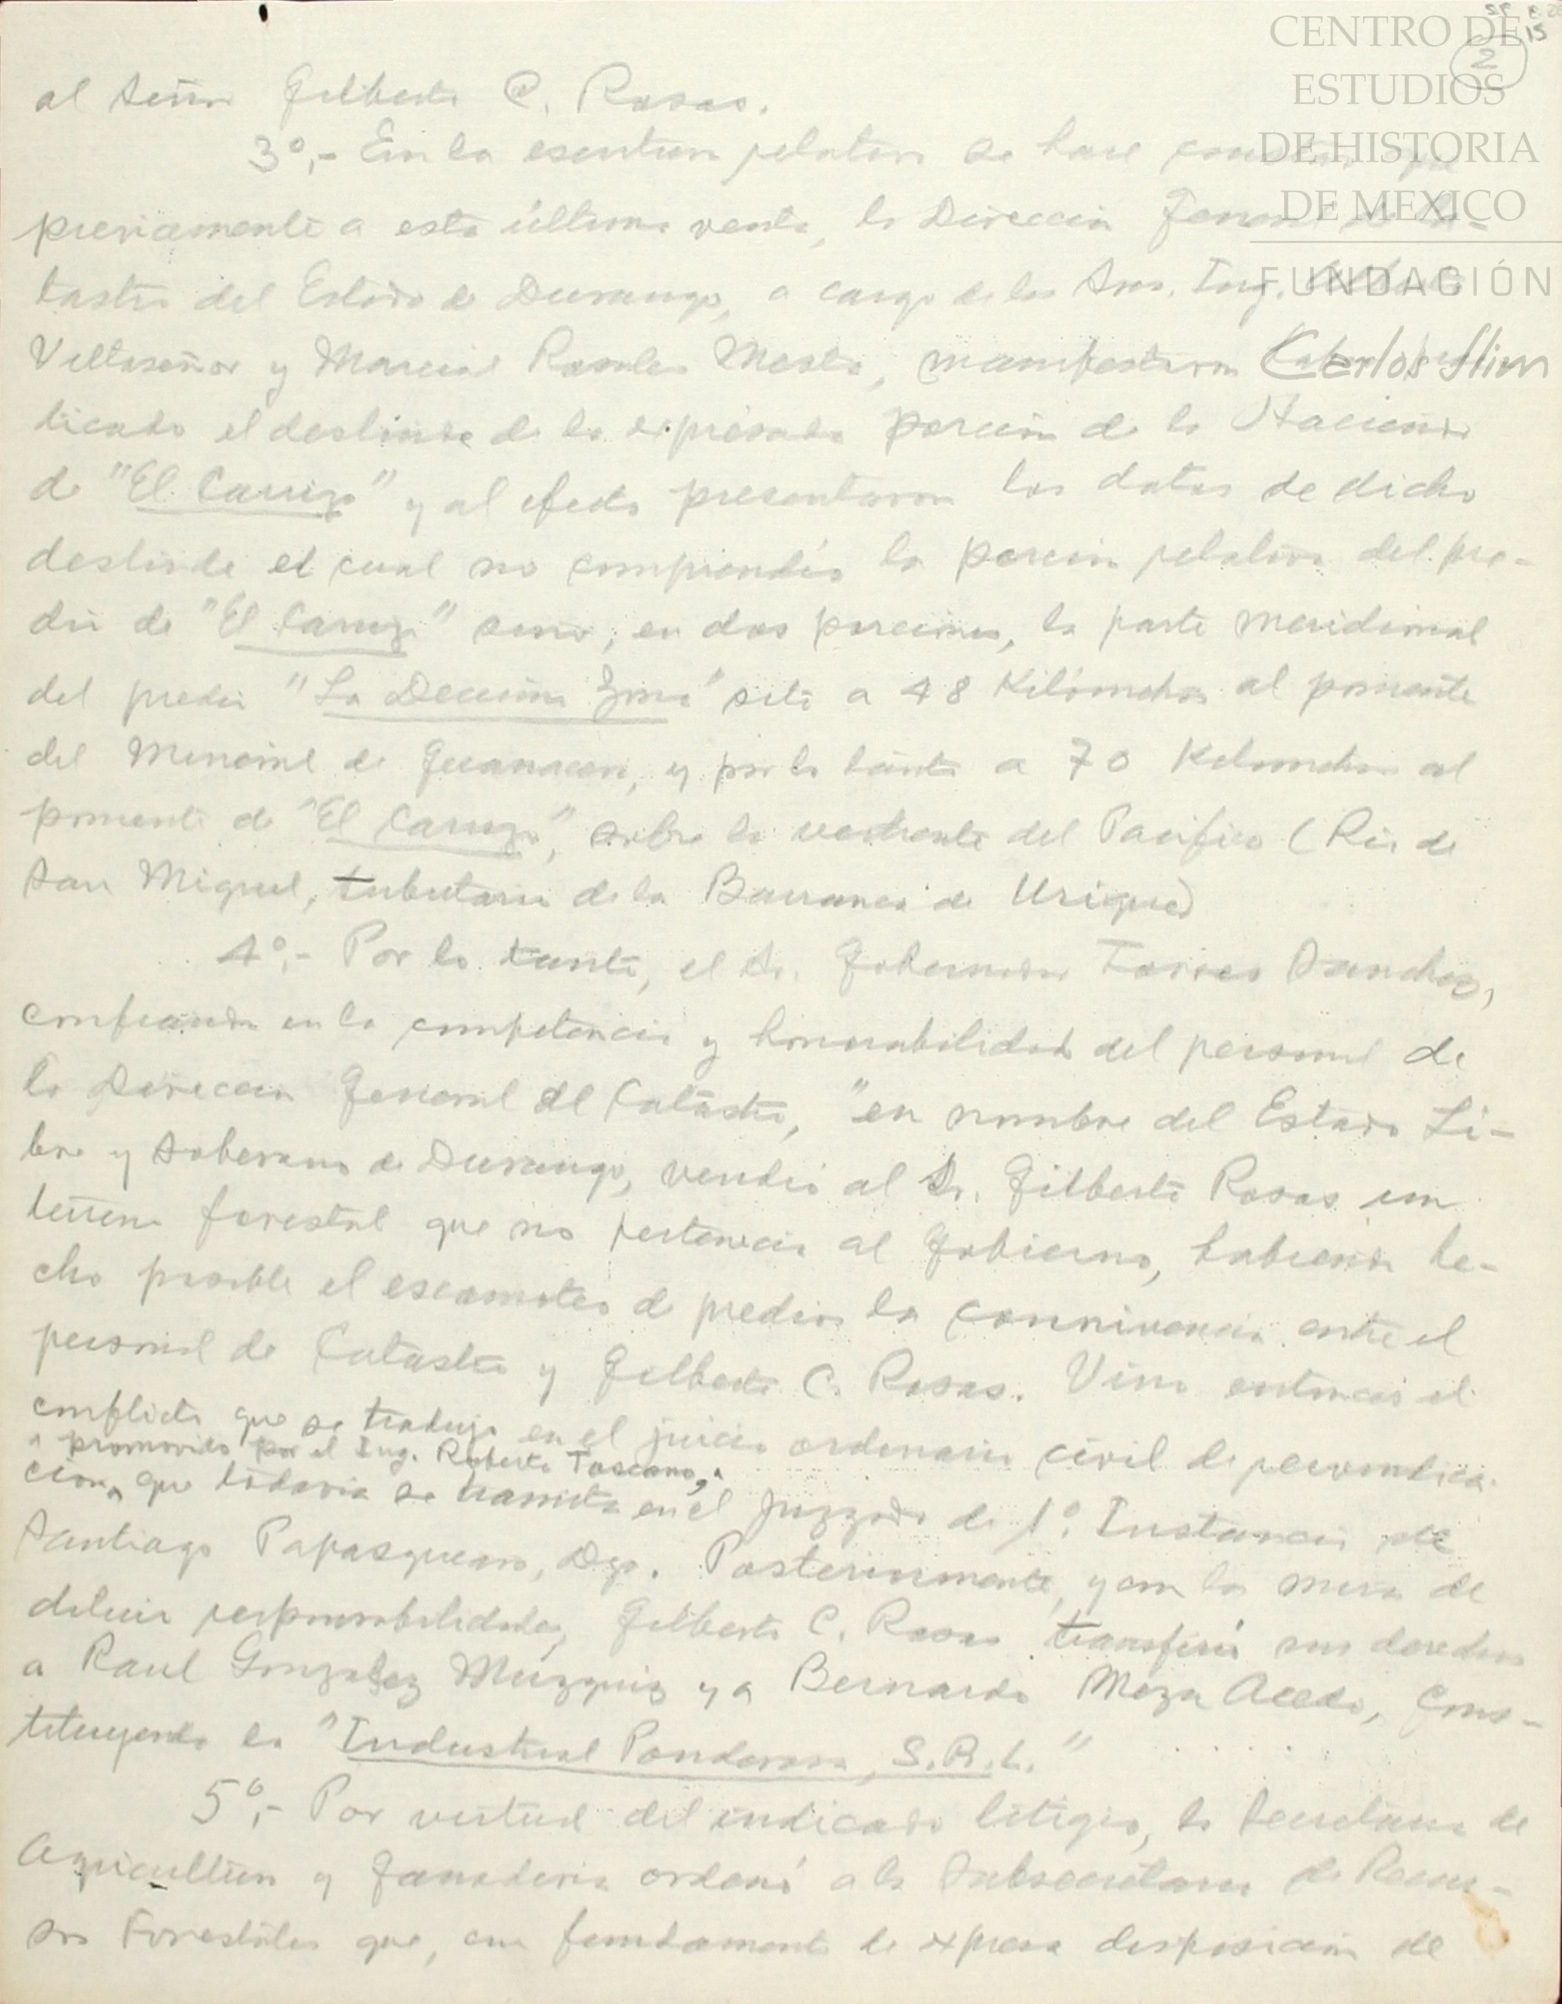 CENTRO DE
ESTUDIOS
DE HISTORIA
DE MEXICO
FUNDACIÓN
Carlos Slim
15
2
al Señor Gilberto C. Rosas.
3º,- En la escritura relativa se hace constar que
previamente a esta última venta, la Dirección General de Ca-
tastro del Estado de Durango, a cargo de los Sres. Ing. Alberto
Villaseñor y Marcial Rosales Mesta, manifestaron haber
dicado el deslinde de la expresada porción de la Hacienda
de "El Carrizo" y al efecto presentaron los datos de dicho
deslinde el cual no comprendía la porción relativa del pre-
dio de "El Carrizo" sino, en dos porciones, la parte meridional
del predio "La Decima Zona" sito a 48 Kilómetros al poniente
del Mineral de Guanaceví, y por lo tanto a 70 Kilometros al
poniente de "El Carrizo", sobre la vertiente del Pacífico (Río de
San Miguel, tributario de la Barranca de Urique)
4º,- Por lo tanto, el Sr. Gobernador Torres Sanchez,
confiando en la competencia y honorabilidad del personal de
la Dirección General del Catastro, "en nombre del Estado Li-
bre y Soberano de Durango, vendió al Sr. Gilberto Rosas un
terreno forestal que no pertenecía al Gobierno, habiendo he-
cho posible el escamoteo de predios la connivencia entre el
personal de Catastro y Gilberto C. Rosas. Vino entonces el
conflicto que se tradujo en el juicio ordinario civil de reivindica-
promovido por el Ing. Roberto Toscano,
ción, que todavía se tramita en el Juzgado de 1º. Instancia de
Santiago Papasquiaro, Dgo. Posteriormente, y con la mira de
diluir responsabilidades, Gilberto C. Rosas transfirió sus derechos
a Raul Gonzalez Múzquiz y a Bernardo Meza Acedo, cons-
tituyendo la "Industrial Ponderosa, S.R.L."
5º,- Por virtud del indicado litigio, la Secretaria de
Agricultura y Ganadería ordenó a la Subsecretaria de Recur-
sos Forestales que, con fundamento de expresa disposición de